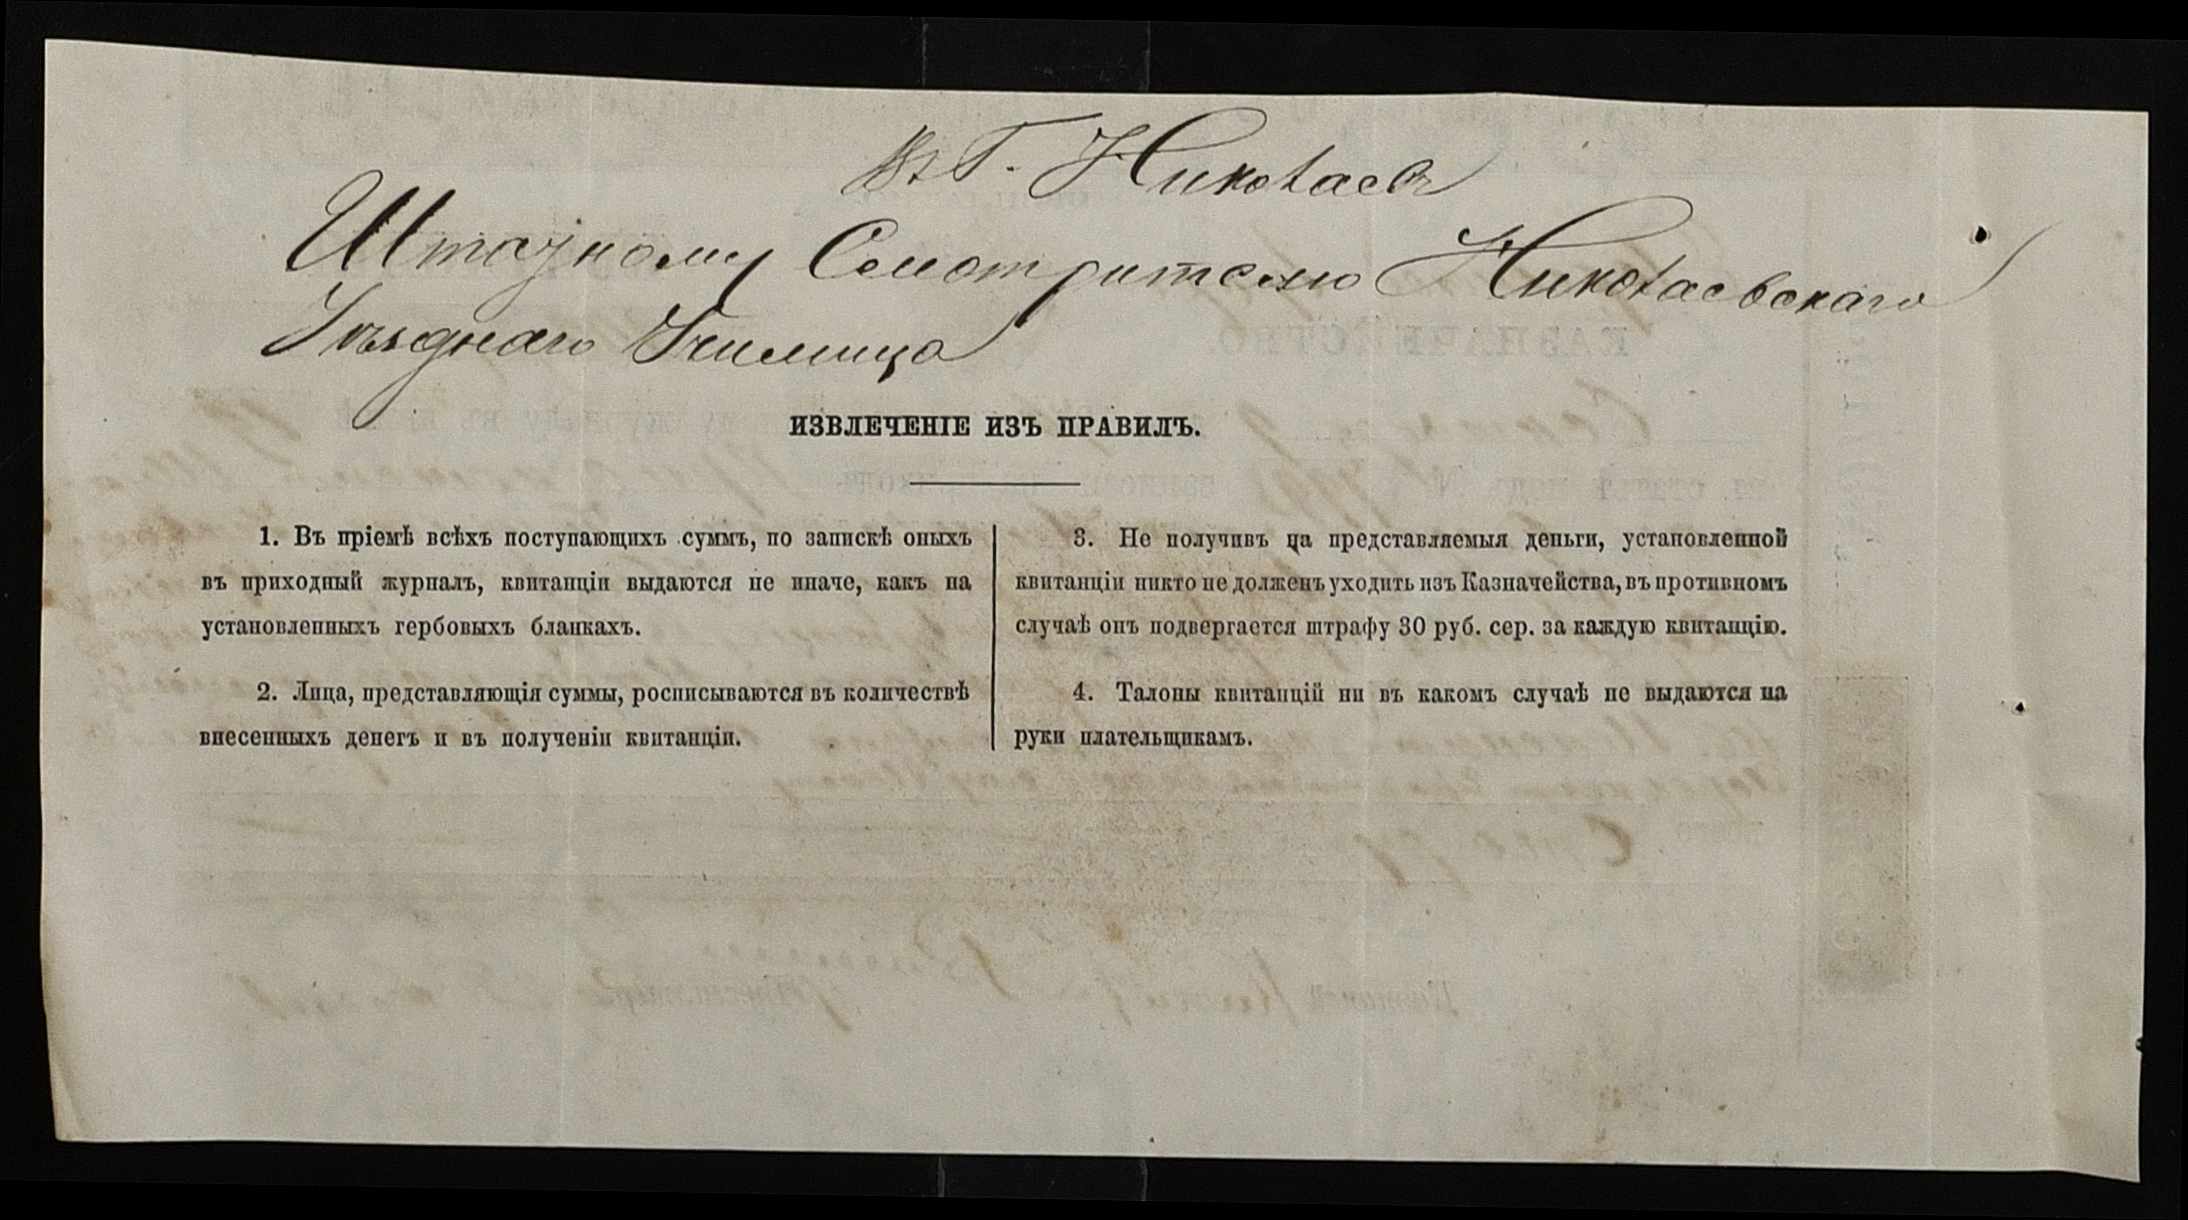 Въ Г. Николаевъ
Штатному Смотрителю Николаевскаго
Уѣзднаго Училища
ИЗВЛЕЧЕНІЕ ИЗЪ ПРАВИЛЪ.
1. Въ пріемѣ всѣхъ поступающихъ суммъ, по запискѣ оныхъ
въ приходный журналъ, квитанціи выдаются не иначе, какъ на
установленныхъ гербовыхъ бланкахъ.
2. Лица, представляющія суммы, росписываются въ количествѣ
внесенныхъ денегъ и въ полученіи квитанціи.
3. Не получивъ на представляемыя деньги, установленной
квитанціи никто не долженъ уходить изъ Казначейства, въ противномъ
случаѣ онъ подвергается штрафу 30 руб. сер. за каждую квитанцію.
4. Талоны квитанцій ни въ какомъ случаѣ не выдаются на
руки плательщикамъ.